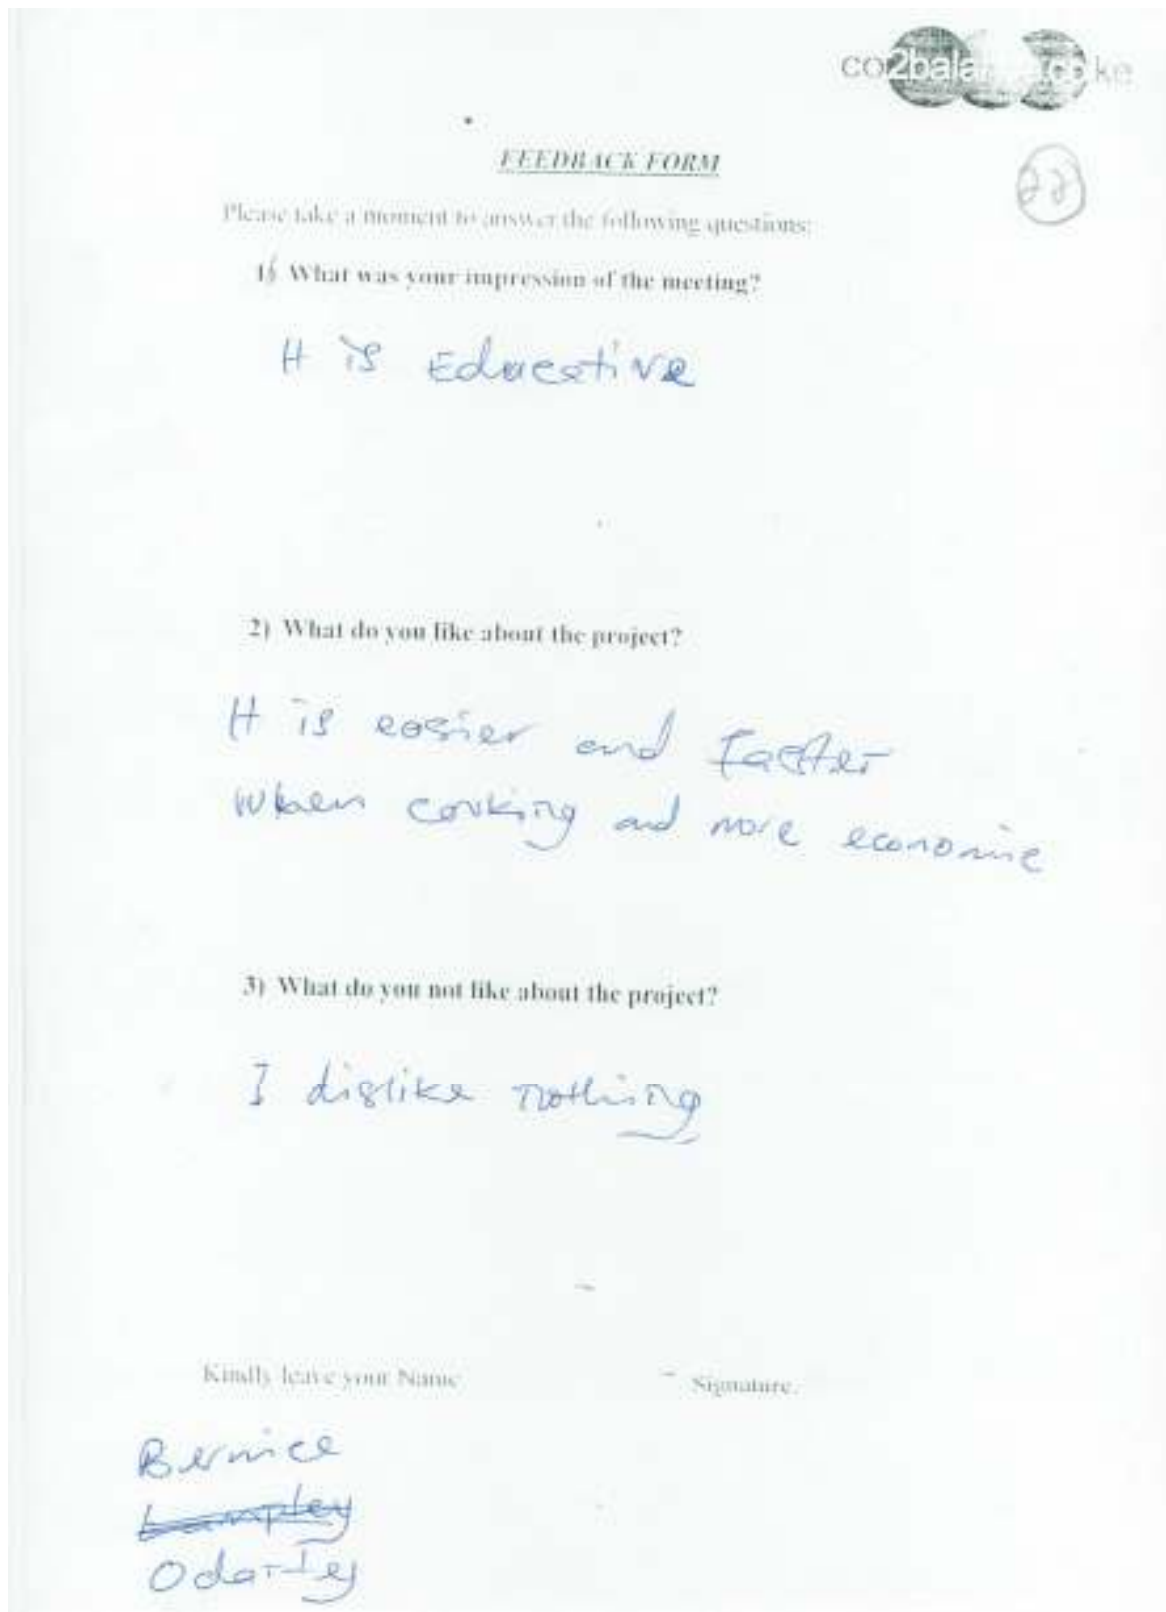 co2balance.co.ke
FEEDBACK FORM
22
Please take a moment to answer the following questions:
1) What was your impression of the meeting?
It is Educative
2) What do you like about the project?
It is easier and faster
when cooking and more economic
3) What do you not like about the project?
I dislike nothing
Kindly leave your Name
Signature.
Bernice
Lampley
Odartey